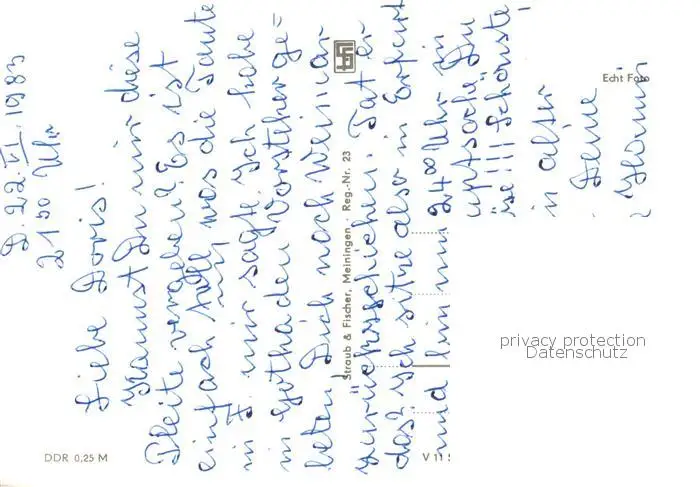 D. 22. VI. 1983
21 50 Uhr
Liebe Doris!
Kannst Du mir diese
Pleite vergeben? Es ist
einfach was die Tante
in F. mir sagte. Ich habe
in Gotha den Vorsteher ge=
beten Dich nach Weimar
zurückschicken. Tat er
das? Ich sitze also in Erfurt
und bin um 24 00 Uhr in
!!! Schönste,
in alter
Deine
Echt Foto
Straub & Fischer, Meiningen · Reg.-Nr. 23
DDR 0,25 M
V 11
privacy protection
Datenschutz